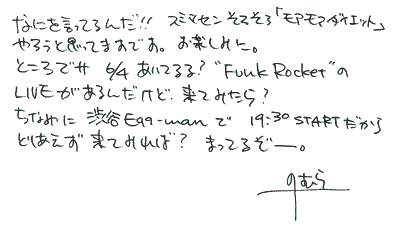 なにを言ってるんだ!! スミマセン そろそろ「モアモアダイエット」
やろうと思ってますです。お楽しみに。
ところでサ 6/4 あいてるる? "Funk Rocket"の
LIVEがあるんだけど、来てみたら?
ちなみに 渋谷 Egg-manで 19:30 STARTだから
とりあえず 来てみれば? まってるぞー。
のむら